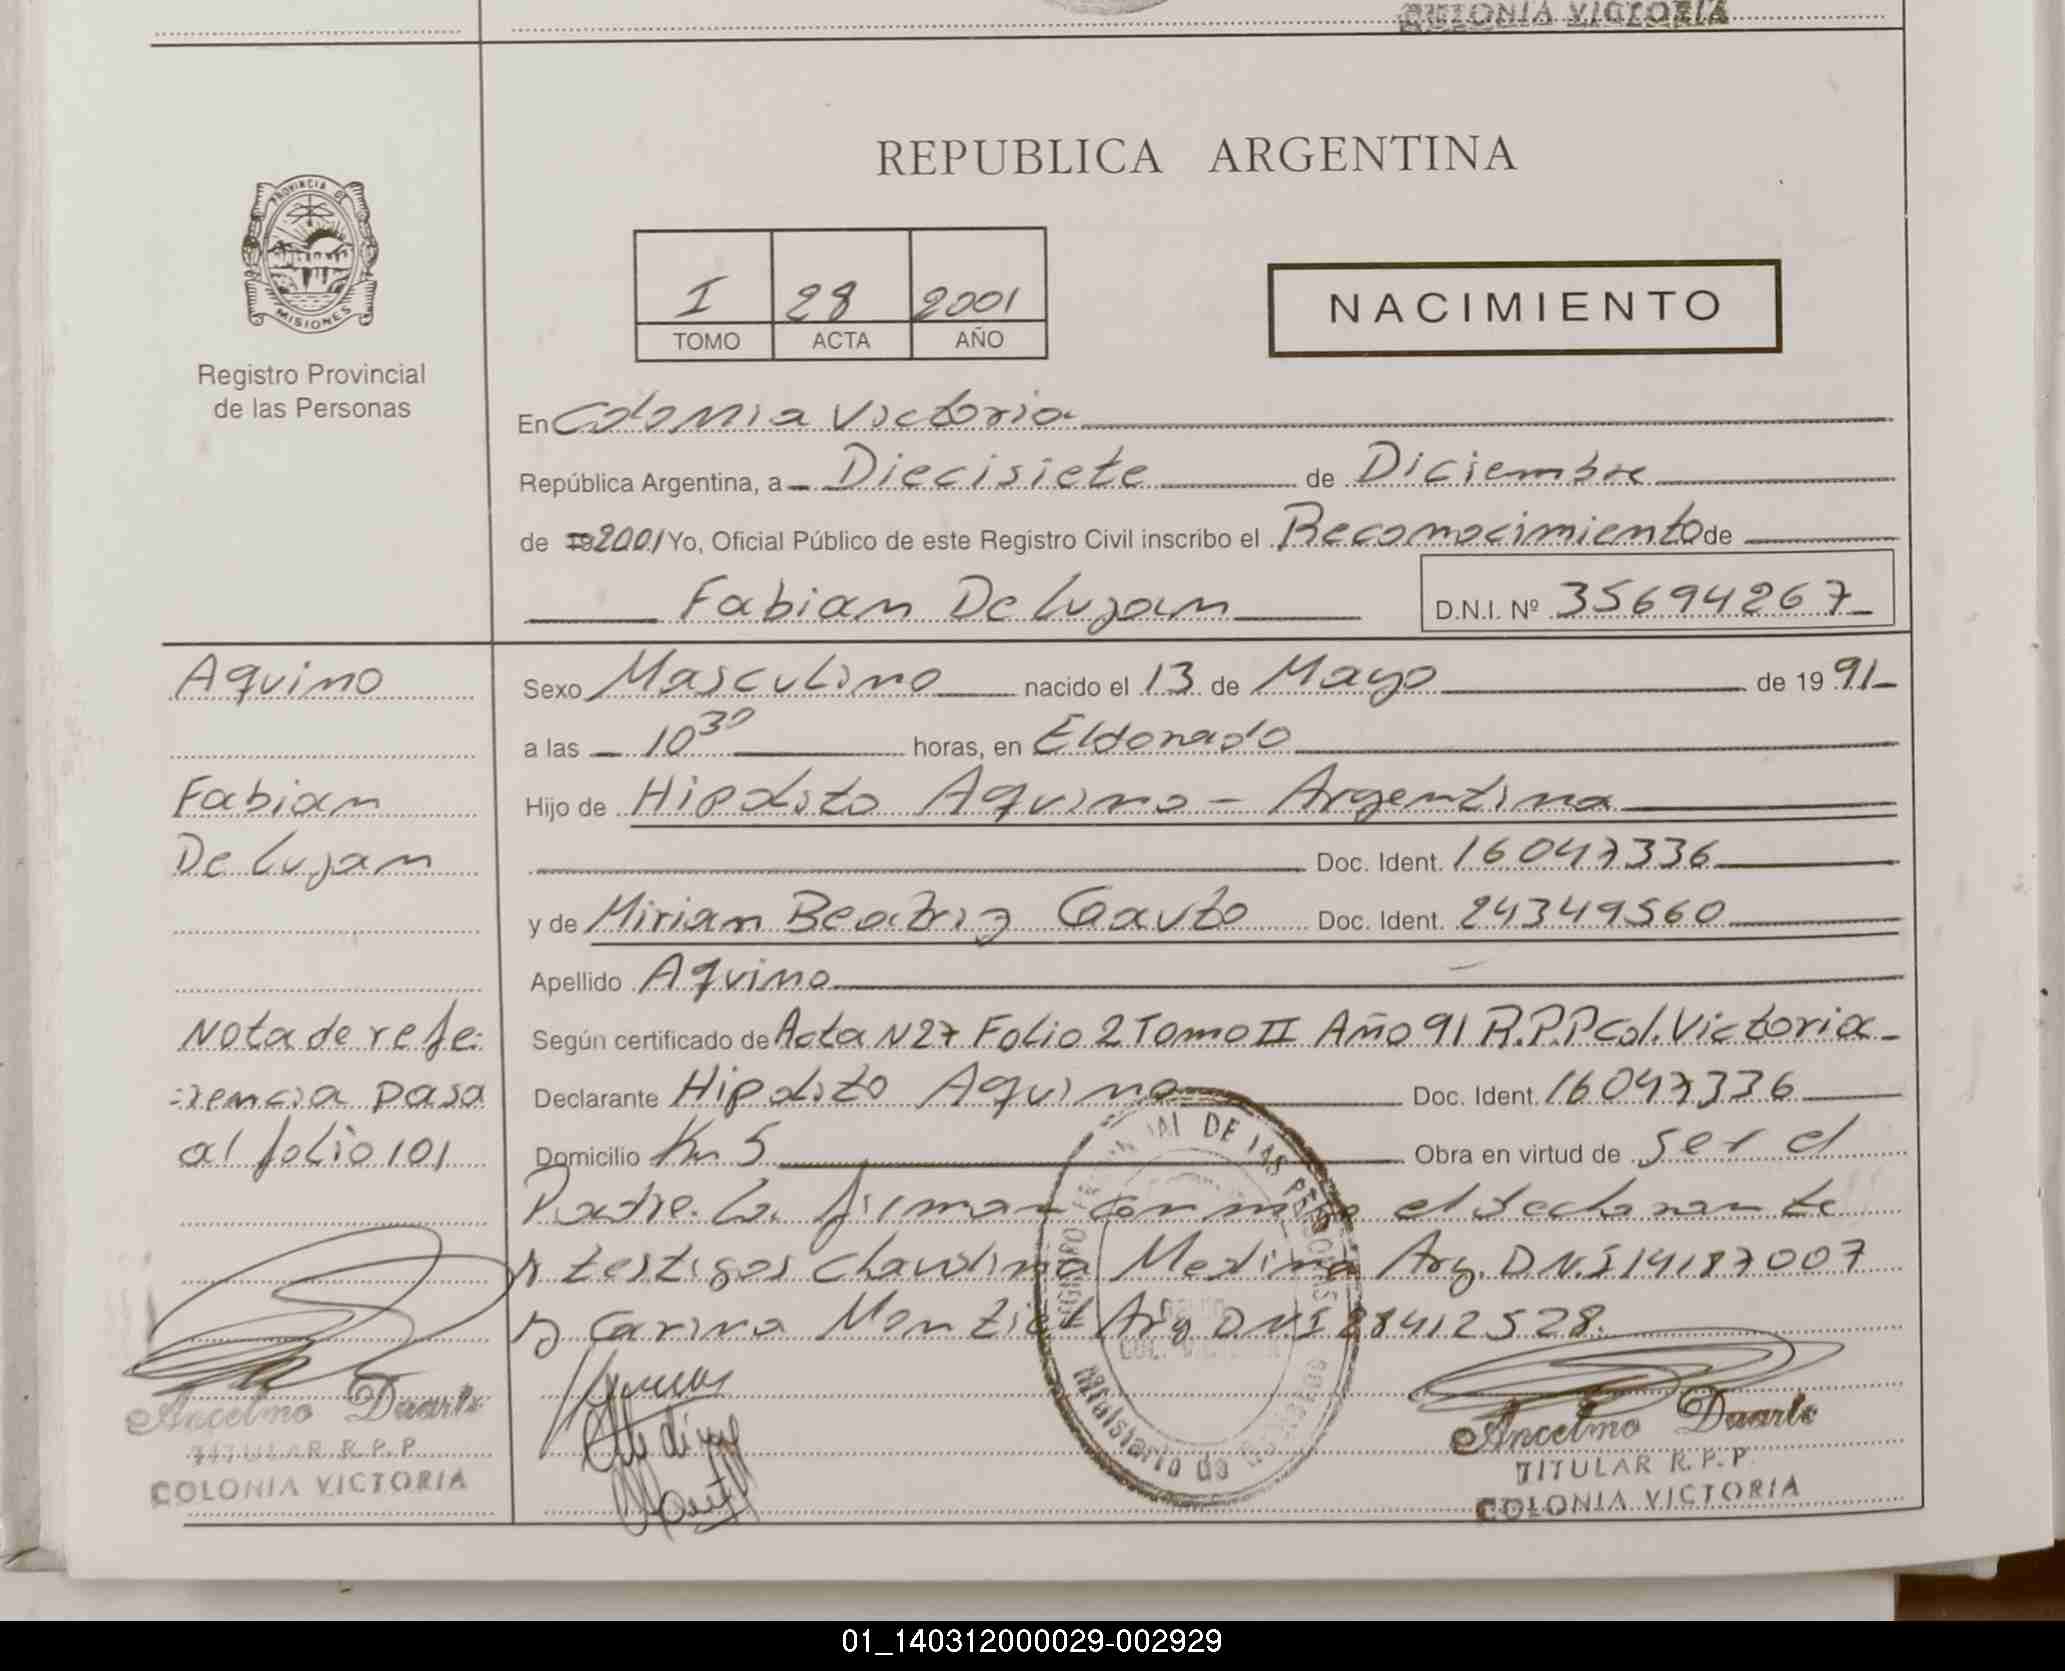 COLONIA VICTORIA
REPUBLICA ARGENTINA
PROVINCIA DE
MISIONES
Registro Provincial
de las Personas
I 28 2001
TOMO ACTA AÑO
NACIMIENTO
En Colonia Victoria
República Argentina, a Diecisiete de Diciembre
de 19 2001 Yo, Oficial Público de este Registro Civil inscribo el Reconocimiento de
Fabian De Lujan D.N.I. Nº 35694267
Aquino
Fabian
De Lujan
Nota de refe-
rencia pasa
al folio 101
Sexo Masculino nacido el 13 de Mayo de 19 91
a las 10 30 horas, en Eldorado
Hijo de Hipolito Aquino - Argentina
Doc. Ident. 16047336
y de Mirian Beatriz Gauto Doc. Ident. 24349560
Apellido Aquino
Según certificado de Acta N 27 Folio 2 Tomo II Año 91 R.P.P Col. Victoria
Declarante Hipolito Aquino Doc. Ident. 16047336
Domicilio Km 5 Obra en virtud de ser el
Padre. La firman conmigo el declarante
y testigos Claudina Medina Arg. D.N.I 14187007
y Carina Montiel Arg D.N.I 28412528.
DE LAS PERSONAS
Ministerio de Gobierno
Ancelmo Duarte
TITULAR R.P.P
COLONIA VICTORIA
Ancelmo Duarte
TITULAR R.P.P
COLONIA VICTORIA
01_140312000029-002929